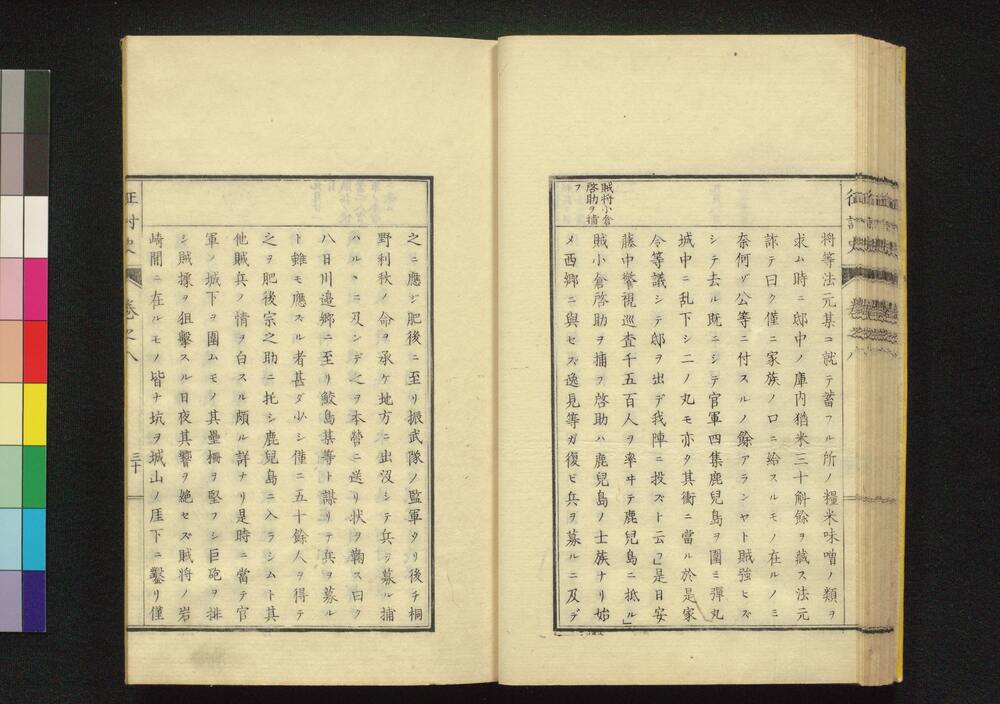 將等法元某ニ就テ蓄フル所ノ糧米味噌ノ類ヲ
求ム時ニ邸中ノ庫内猶米三十斛餘ヲ藏ス法元
詐テ曰ク僅ニ家族ノ口ニ給スルモノ在ルノミ
奈何ゾ公等ニ付スルノ餘アランヤト賊強ヒズ
シテ去ル既ニシテ官軍四集鹿兒島ヲ圍ミ彈丸
城中ニ乱下シ二ノ丸モ亦タ其衝ニ當ル於是家
令等議シテ邸ヲ出デ我陣ニ投ズト云」是日安
藤中警視巡査千五百人ヲ率ヰテ鹿兒島ニ抵ル」
賊將小倉
啓助ヲ捕
フ
賊小倉啓助ヲ捕フ啓助ハ鹿兒島ノ士族ナリ始
メ西郷ニ與セズ逸見等ガ復ビ兵ヲ募ルニ及デ
之ニ應ジ肥後ニ至リ振武隊ノ監軍タリ後チ桐
野利秋ノ命ヲ承ケ地方ニ出沒シテ兵ヲ募ル捕
ハルヽニ及ンデ之ヲ本營ニ送リ状ヲ鞠ス曰ク
八日川邉郷ニ至リ鮫島某等ト謀リテ兵ヲ募ル
ト雖モ應ズル者甚ダ少シ僅ニ五十餘人ヲ得テ
之ヲ肥後宗之助ニ托シ鹿兒島ニ入ラシムト其
他賊兵ノ情ヲ白スル頗ル詳ナリ是時ニ當テ官
軍ノ城下ヲ圍ムモノ其壘柵ヲ堅フシ巨砲ヲ排
シ賊據ヲ狙擊スル日夜其響ヲ絶セズ賊將ノ岩
崎間ニ在ルモノ皆ナ坑ヲ城山ノ厓下ニ鑿リ僅
征討史
卷之八
三十